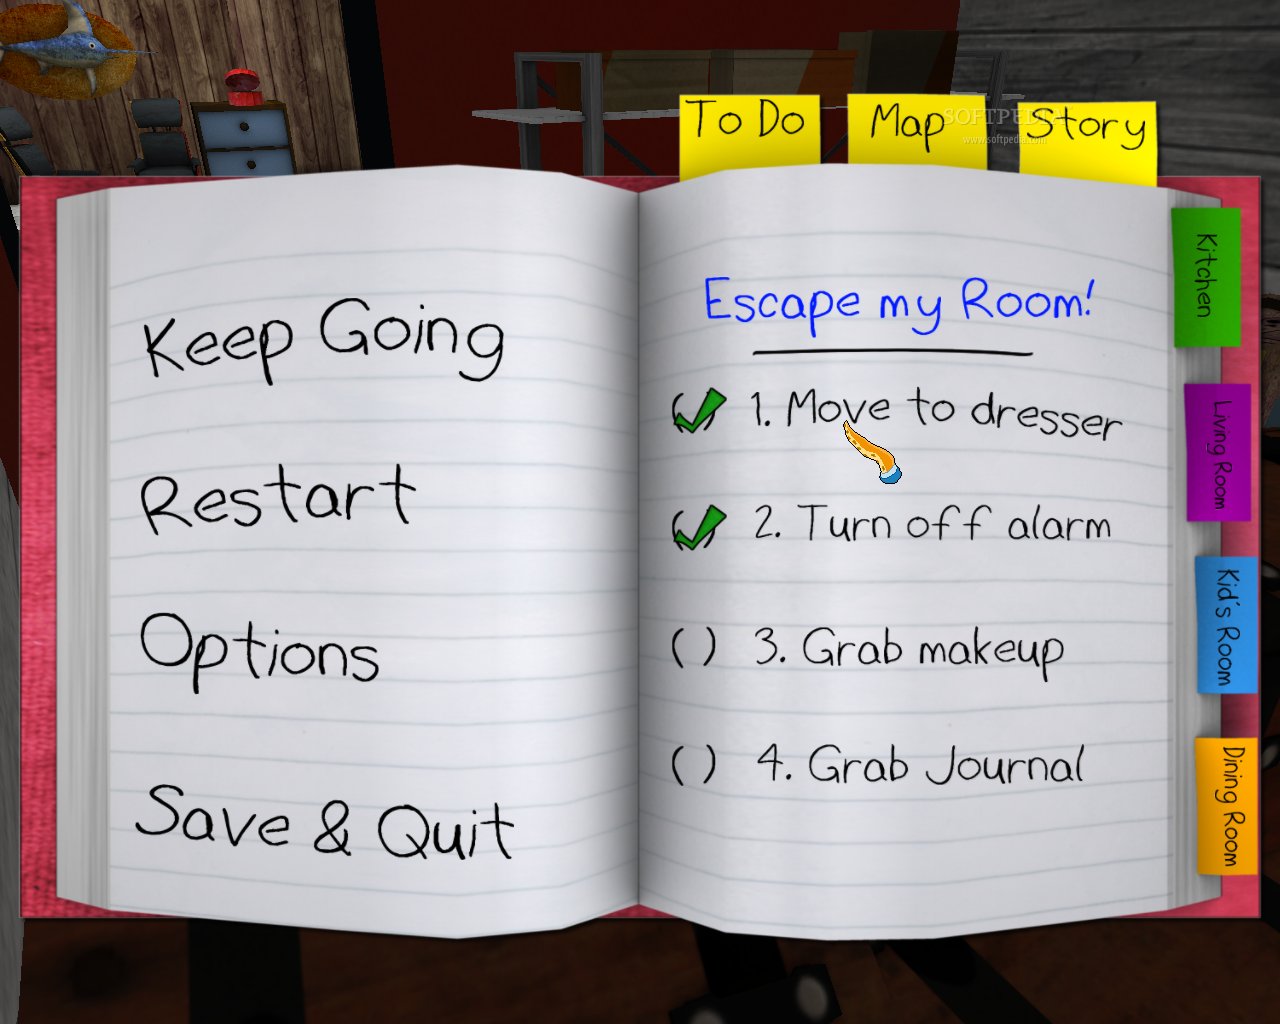 To Do
Map
Story
SOFTPEDIA
www.softpedia.com
Keep Going
Restart
Options
Save & Quit
Escape my Room!
1. Move to dresser
2. Turn off alarm
( ) 3. Grab makeup
( ) 4. Grab Journal
Kitchen
Living Room
Kid's Room
Dining Room